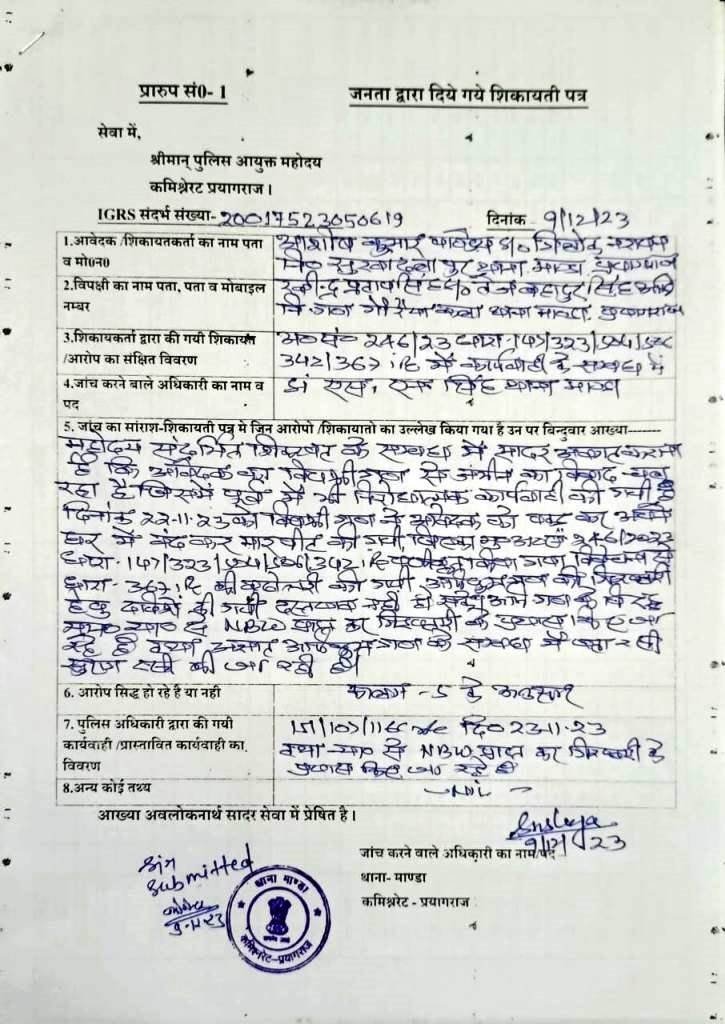 प्रारुप सं0- 1
जनता द्वारा दिये गये शिकायती पत्र
सेवा में,
श्रीमान् पुलिस आयुक्त महोदय
कमिश्नरेट प्रयागराज।
IGRS संदर्भ संख्या- 20017523050619 दिनांक- 9/12/23
1.आवेदक /शिकायतकर्ता का नाम पता व मो0न0
आशीष कुमार पाण्डेय S/o त्रिलोक नारायण
थाना माण्डा प्रयागराज
2.विपक्षी का नाम पता, पता व मोबाइल नम्बर
रवीन्द्र प्रताप सिंह S/o तेज बहादुर सिंह आदि
थाना माण्डा प्रयागराज
3.शिकायतकर्ता द्वारा की गयी शिकायत /आरोप का संक्षित विवरण
अ0सं0 246/23 धारा 147/323/504/506
342/367 में कार्यवाही के सम्बन्ध में
4.जांच करने बाले अधिकारी का नाम व पद
सिंह थाना माण्डा
5. जांच का सांराश-शिकायती पत्र में जिन आरोपो /शिकायातो का उल्लेख किया गया है उन पर बिन्दुवार आख्या-------
महोदय संदर्भित शिकायत के सम्बन्ध में सादर अवगत कराना
है कि आवेदक का विपक्षीगण से जमीन का विवाद चल
रहा है जिसमें पूर्व में भी निरोधात्मक कार्यवाही की गयी है
दिनांक 22-11-23 को विपक्षीगण ने आवेदक को पकड़ कर अपने
घर में बंद कर मारपीट की गयी 246/2023
धारा- 147/323/504/506/342 पंजीकृत किया गया विवेचना से
धारा- 367 की बढोत्तरी की गयी की गिरफ्तारी
हेतु दबिश दी गयी
से NBW प्राप्त कर गिरफ्तारी के प्रयास किये जा
रहे है के सम्बन्ध में
की जा रही है।
6. आरोप सिद्ध हो रहे है या नही
कालम- 5 के अनुसार
7. पुलिस अधिकारी द्वारा की गयी कार्यवाही /प्रास्तावित कार्यवाही का. विवरण
151/107/116 दि0 23.11.23
से NBW प्राप्त कर गिरफ्तारी के
प्रयास किये जा रहे है
8.अन्य कोई तथ्य
-NIL-
आख्या अवलोकनार्थ सादर सेवा में प्रेषित है।
9/12/23
जांच करने वाले अधिकारी का नाम/पद
थाना- माण्डा
कमिश्नरेट - प्रयागराज
Sir
Submitted
थाना माण्डा
कमिश्नरेट-प्रयागराज